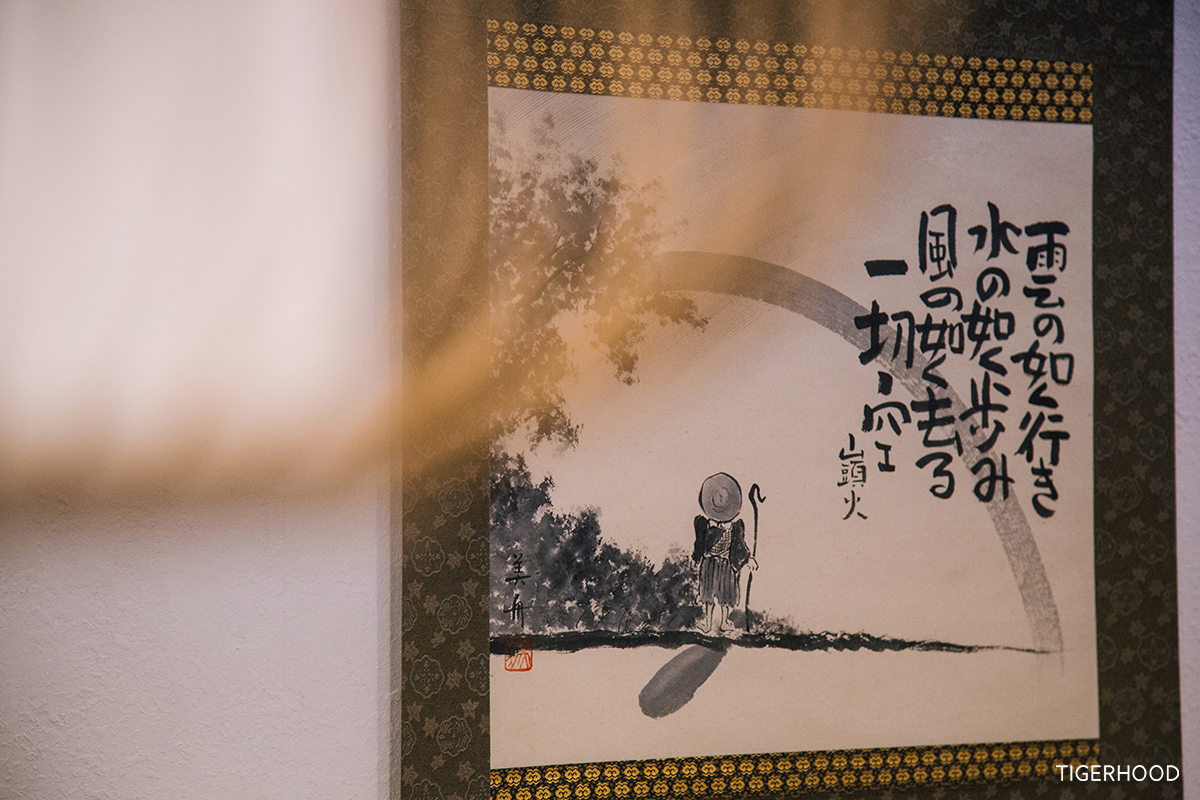 雲の如く行き
水の如く歩み
風の如く去る
一切空
山頭火
美舟
TIGERHOOD